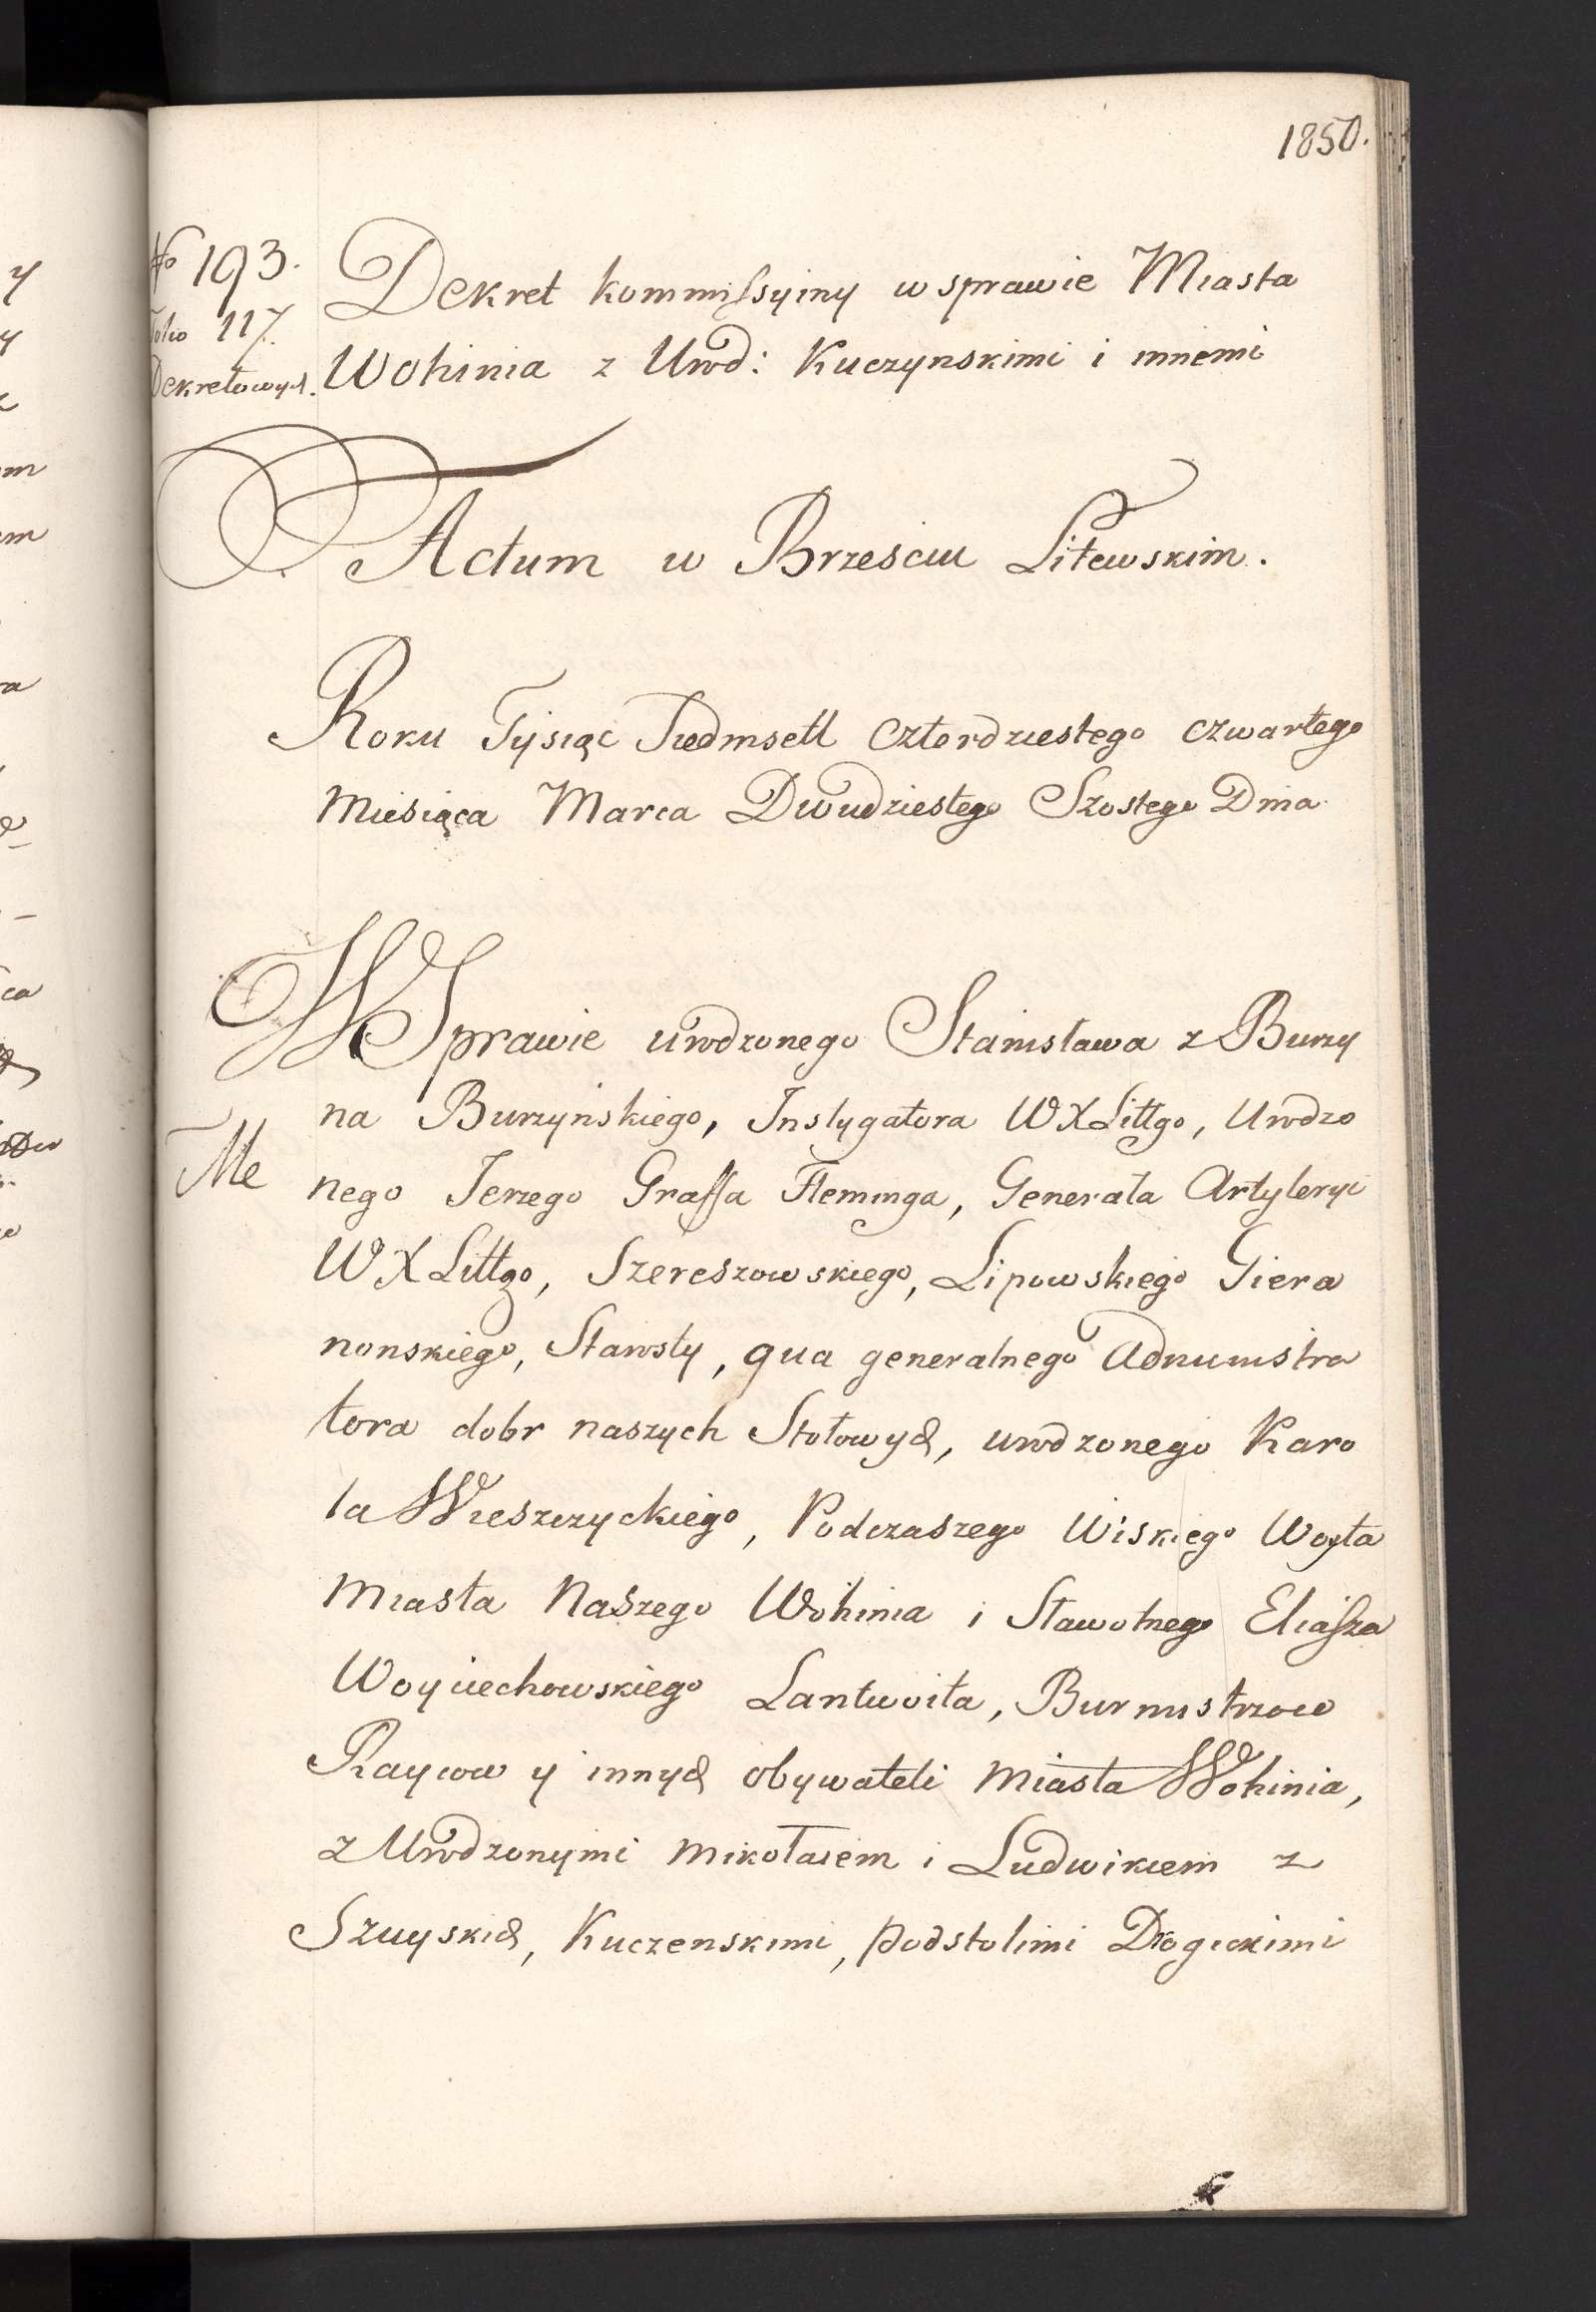 1850.
No 193.
Folio 117.
Dekretowych.
Dekret kommissyiny w sprawie Miasta
Wohinia z Urod: Kuczynskimi i innemi
Actum w Brzesciu Litewskim.
Roku Tysiąc Siedmsett czterdziestego czwartego
Miesiąca Marca Dwudziestego Szostego Dnia
W Sprawie urodzonego Stanisława z Burzy
na Burzyńskiego, Instygatora WXLittgo, Urodzo
Me
nego Jerzego Graffa Fleminga, Generała Artyleryi
WXLittgo, Szereszowskiego, Lipowskiego Giera
nonskiego, Starosty, qua generalnego Administra
tora dobr naszych Stołowych, urodzonego Karo
la Wieszczyckiego, Podczaszego Wiskiego Woyta
Miasta Naszego Wohinia i Sławotnego Eliasza
Woyciechowskiego Lantwoita, Burmistrzow
Raycow y innych obywateli Miasta Wohinia,
z Urodzonymi Mikołaiem i Ludwikiem z
Szuyskich, Kuczenskimi, Podstolimi Drogickimi